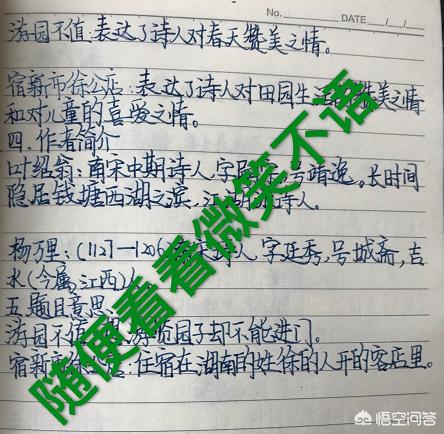 No.
DATE
游园不值:表达了诗人对春天赞美之情。
宿新市徐公店:表达了诗人对田园生 赞美之情
和对儿童的喜爱之情。
四.作者简介
叶绍翁:南宋中期诗人,字 号靖逸。长时间
隐居钱塘西湖之滨, 诗人。
杨万里:(1127—1206) 诗人,字廷秀,号城斋,吉
水(今属江西)
五.题目意思
游园不值 游赏园子却不能进门。
宿新市徐公店:住宿在湖南的姓徐的人开的客店里。
随便看看微笑不语
悟空问答